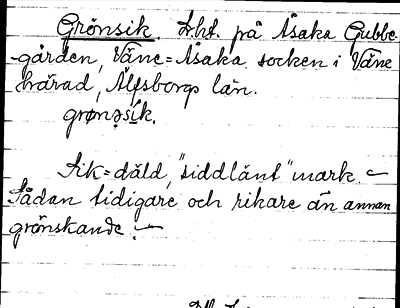 Grönsik. Lht. på Åsaka Gubbe-
gården, Väne=Åsaka socken i Väne
härad, Älfsborgs län.
grønəsik.
Sik=däld, "siddlänt" mark. –
Sådan tidigare och rikare än annan
grönskande. –